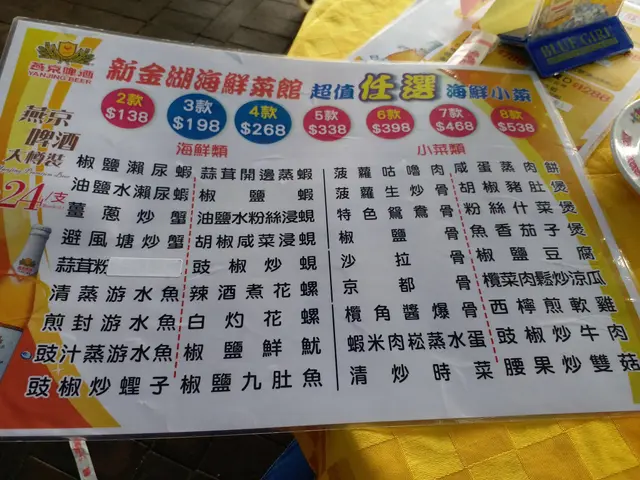 燕京啤酒
YANJING BEER
新金湖海鮮菜館 超值 任選 海鮮小菜
2款 $138
3款 $198
4款 $268
5款 $338
6款 $398
7款 $468
8款 $538
燕京
啤酒
大樽裝
24/支
海鮮類
椒鹽瀨尿蝦
油鹽水瀨尿蝦
薑蔥炒蟹
避風塘炒蟹
蒜茸粉
清蒸游水魚
煎封游水魚
豉汁蒸游水魚
豉椒炒蟶子
蒜茸開邊蒸蝦
椒鹽蝦
油鹽水粉絲浸蜆
胡椒咸菜浸蜆
豉椒炒蜆
辣酒煮花螺
白灼花螺
椒鹽鮮魷
椒鹽九肚魚
小菜類
菠蘿咕嚕肉
菠蘿生炒骨
特色鴛鴦骨
椒鹽骨
沙拉骨
京都骨
欖角醬爆骨
蝦米肉崧蒸水蛋
清炒時菜
咸蛋蒸肉餅
胡椒豬肚煲
粉絲什菜煲
魚香茄子煲
椒鹽豆腐
欖菜肉鬆炒涼瓜
西檸煎軟雞
豉椒炒牛肉
腰果炒雙菇
BLUE GIRL